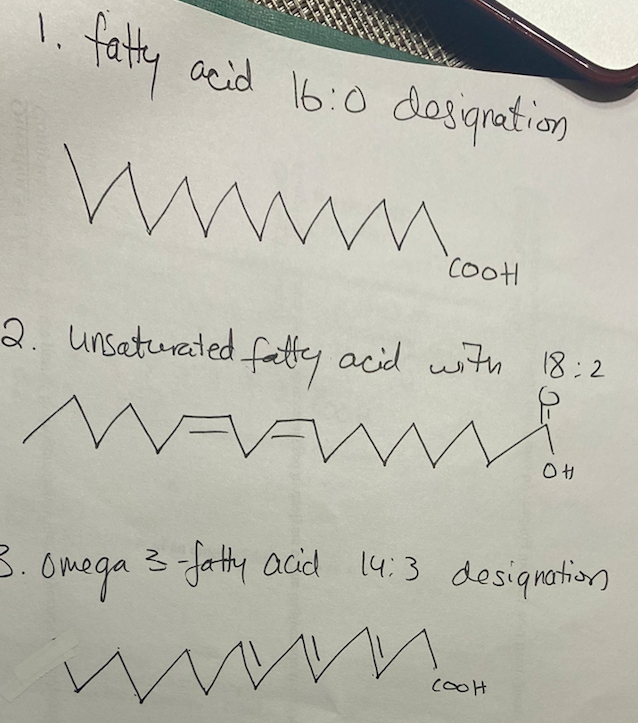 1. fatty acid 16:0 designation
COOH
2. Unsaturated fatty acid with 18:2
O
OH
3. Omega 3-fatty acid 14:3 designation
COOH